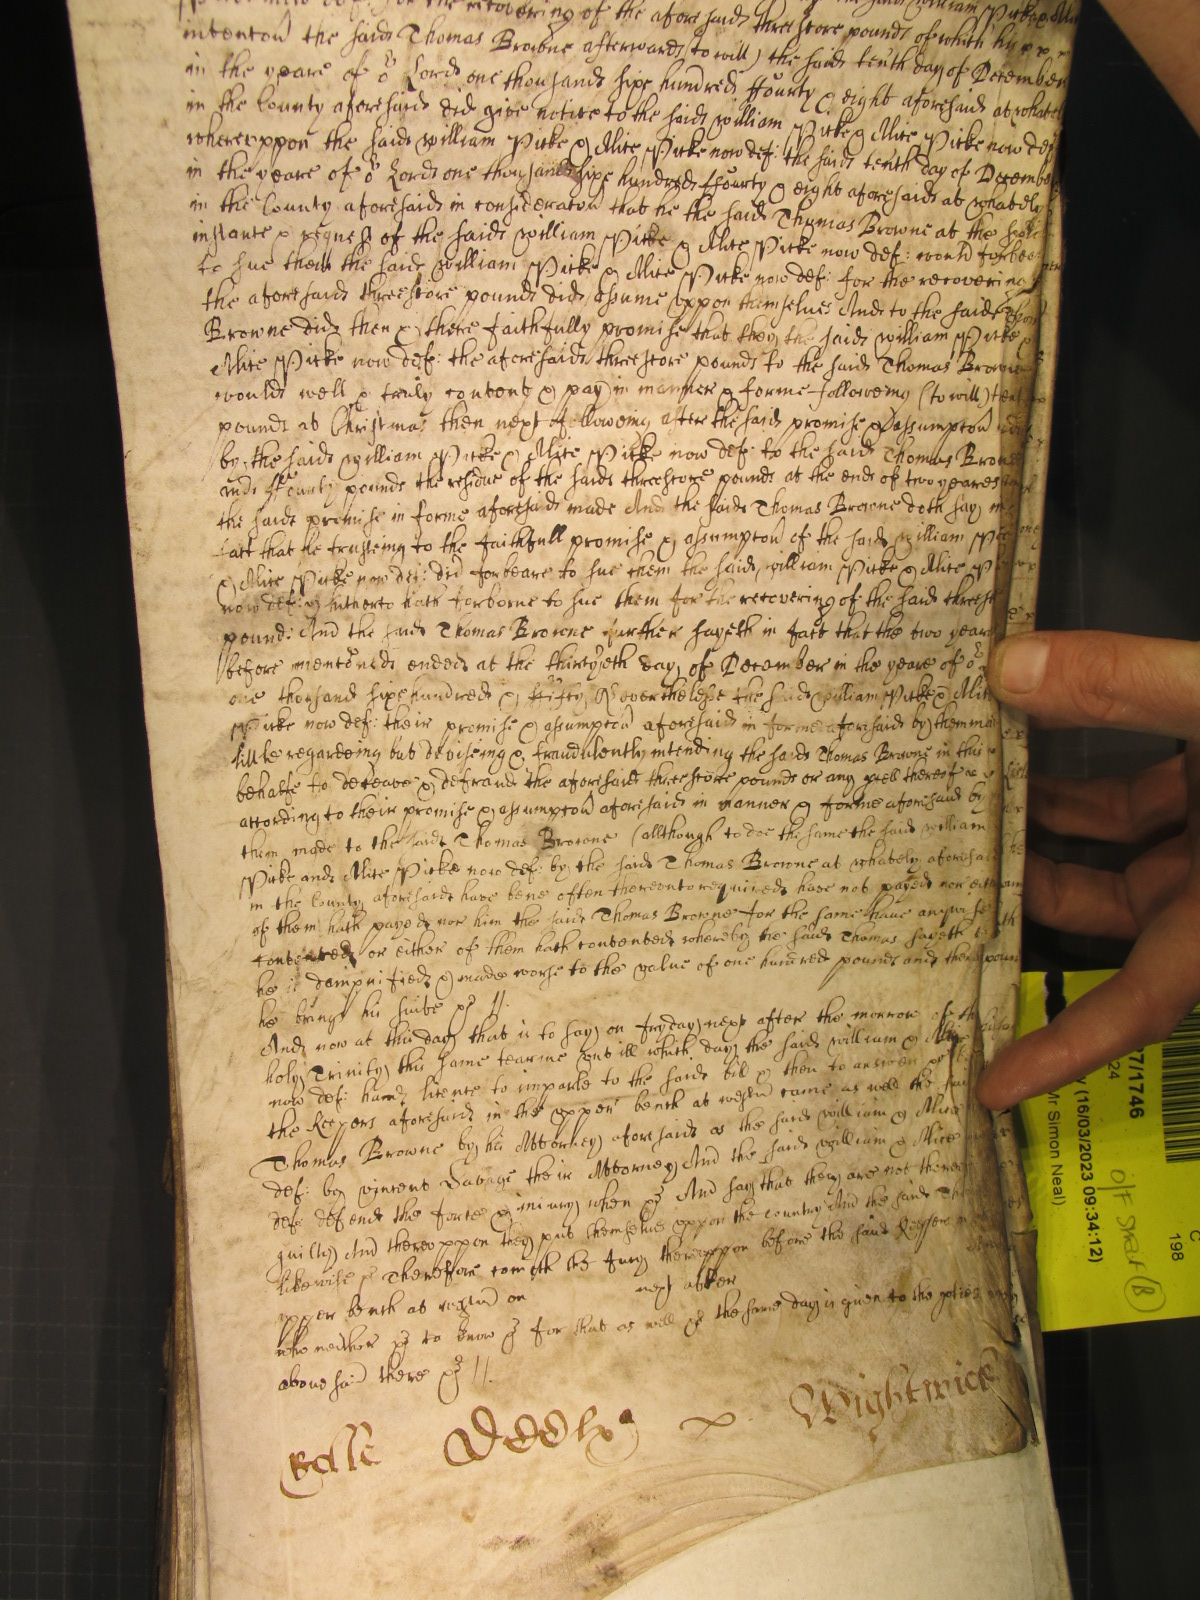 for the recovering of the aforesaid threescore pounds of which his
intentoñ the said Thomas Browne afterwards (to witt) the said tenth day of December
in the yeare of oʳ Lord one thousand sixe hundred ffourty & eight aforesaid at whatel
in the County aforesaid did give notice to the said William Picke & Alice Picke now def
whereuppon the said William Picke & Alice Picke now def: the said tenth day of Decembe
in the yeare of oʳ Lord one thousand sixe hundred ffourty & eight aforesaid at whately
in the County aforesaid in consideratoñ that he the said Thomas Browne at the
instance & request of the said William Picke & Alice Picke now def: would forbeare
to sue them the said William Picke & Alice Picke now def: for the recovering
the aforesaid threescore pounds did assume uppon themselves And to the said
Browne did then & there faithfully promise that they the said William Picke &
Alice Picke now def: the aforesaid threescore pounds to the said Thomas Browne
would well & truly content & pay in manner & forme following (to witt) ten
pounds at Christmas then next following after the said promise & assumptoñ
by the said William Picke & Alice Picke now def: to the said Thomas Browne
and pounds the residue of the said threescore pounds at the end of two yeares
the said promise in forme aforesaid made And the said Thomas Browne doth say in
fact that he trusting to the faithfull promise & assumptoñ of the said William Picke
& Alice Picke now def: did forbeare to sue them the said William Picke & Alice Picke
now def: & hitherto hath forborne to sue them for the recovering of the said threesc
pound: And the said Thomas Browne further sayeth in fact that the two years
before mentoñed ended at the thirtyeth day of December in the yeare of oʳ
one thousand sixe hundred & fifty Neverthelesse the said William Picke & Alice
Picke now def: their promise & assumptoñ aforesaid in forme aforesaid by them made
little regarding but deviseing & fraudulently intending the said Thomas Browne in this
behalfe to deceave & defraud the aforesaid threescore pounds or any peñy thereof
according to their promise & assumptoñ aforesaid in manner & forme aforesaid by
them made to the said Thomas Browne (allthough to doe the same the said William
Picke and Alice Picke now def: by the said Thomas Browne at whately aforesaid
in the County aforesaid have bene often thereunto required have not payed nor either
of them hath payed nor him the said Thomas Browne for the same have anywise
contented or either of them hath contented whereby the said Thomas sayeth
he is dampnifyed & made worse to the value of one hundred pounds and there
he brings his suite &c //.
And now at this day that is to say on fryday next after the morrow of the
holy Trinity this same tearme untill which day the said William & Alice
now def: had licence to imparle to the said bill & then to answer &c:
the Keepers aforesaid in the upper bench at westm̃ came as well the said
Thomas Browne by his Attorney aforesaid as the said William & Alice
def: by Vincent Savage their Attorney And the said William & Alice
def: defend the force & iniury when &c And say that they are not thereof
guilty And thereuppon they put themselves uppon the Country And the said Tho
likewise &c Therefore cometh the Jury thereuppon before the said Keepers
upper bench at westm̃ on next after
who neither &c to know &c for that as well &c the same day is given to the pties
abovesaid there &c //.
Wightwick
7/1746
24
(16/03/2023 09:34:12)
Mr Simon Neal)
198